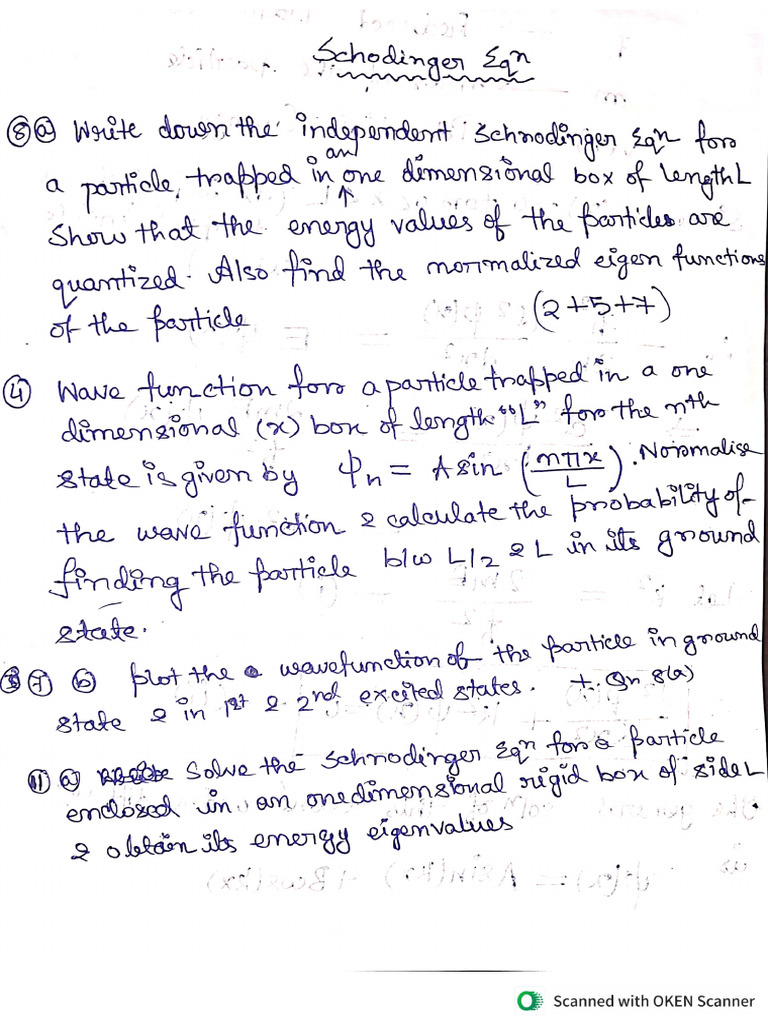 Schodinger Eqn
⑧ⓐ Write down the independent Schrodinger Eqn for
an
a particle, trapped in one dimensional box of length L
Show that the energy values of the particles are
quantized. Also find the normalized eigen functions
of the particle (2+5+7)
④ Wave function for a particle trapped in a one
dimensional (x) box of length "L" for the nth
state is given by ψn = A sin (nπx/L). Normalise
the wave function & calculate the probability of
finding the particle b/w L/2 & L in its ground
state.
⑦ ⓑ plot the wavefunction of the particle in ground
state & in 1st & 2nd excited states. + Qn 8(a)
⑪ ⓐ Solve the Schrodinger Eqn for a particle
enclosed in an one dimensional rigid box of side L
& obtain its energy eigenvalues
Scanned with OKEN Scanner